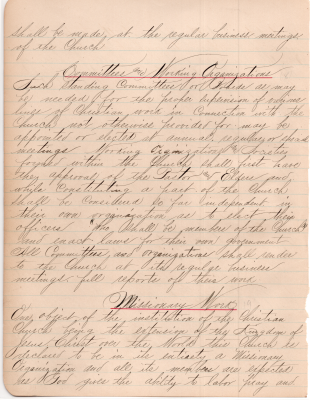 shall be made, at the regular business meetings
of the Church
Committees and Working Organizations
Such standing Committees or Boards as may
be needed for the proper expension of any one
line of Christian work in Connection with the
Church not otherwise provided for may be
appointed or elected at annual regular or special
meetings Working Organizations or Societies
formed within the Church shall first have
the approval of the Pastor and Elders and
while Constituting a part of the Church
shall be Considered so far independent in
their own organization as to elect their
officers "who shall be members of the Church"
and enact laws for their own government
All Committees and organizations shall render
to the Church at its regular business
meetings full reports of their work
Missionary Work
One object of the institution of the Christian
Church being the extension of the Kingdom of
Jesus Christ over the World this Church is
declared to be in its entirety a Missionary
Organization and all its members are expected
as God gives the ability to labor pray and